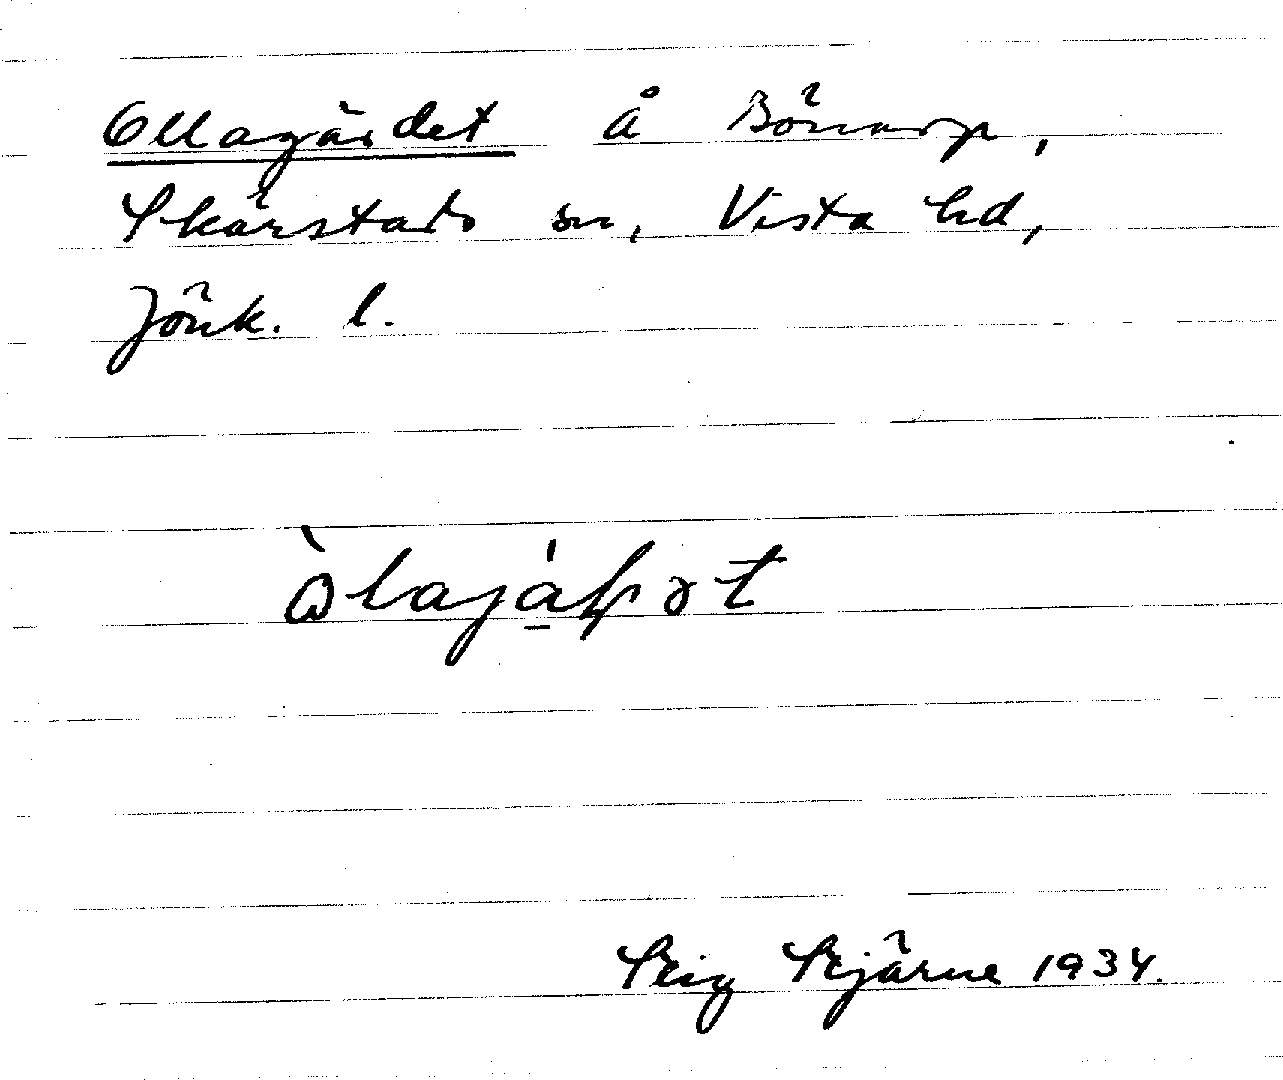 Ollagärdet å Bönarp,
Skärstads sn, Vista hd,
Jönk. l.
Stig Stjärne 1934.